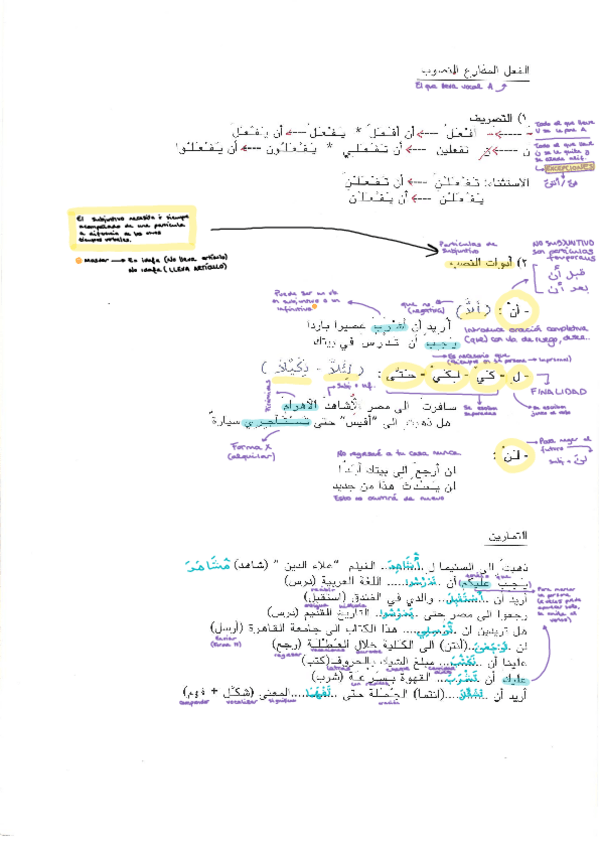 الفعل المضارع المنصوب
El que lleva vocal A
١) التصريف
أفْعَلُ ---> أن أفْعَلَ * يَفْعَلُ ---> أن يَفْعَلَ
تفعلين ---> أن تَفْعَلي * يَفْعَلُون ---> أن يَفْعَلُوا
Todo el que lleve U se le pone A
Todo el que lleve ن se le quita y se añade alif.
EXCEPCIONES
الاستثناء: تَفْعَلْنَ ---> أن تَفْعَلْنَ
يَفْعَلْنَ ---> أن يَفْعَلْنَ
El subjuntivo necesita ir siempre acompañado de una partícula a diferencia de los otros tiempos verbales.
Masdar → En idafa (No lleva artículo)
No idafa (LLEVA ARTÍCULO)
Partículas de subjuntivo
٢) أدوات النصب
NO SUBJUNTIVO son partículas temporales
قبل أن
بعد أن
- أن : (ألاَّ)
que no (negativa)
Puede ser un vb en subjuntivo o un infinitivo
أريد أن أشرب عصيرا باردا
يَجِب أن تدرس في بيتك
Introduce oración completiva (que) con vb de ruego, deseo..
Es necesario que
- لِ - كَيْ - لِكَيْ - حتّى : (لِئَلاَّ - لِكَيْلاَ)
FINALIDAD
Subj + inf.
Se escriben separadas
Se escriben junto al vb
Pirámides
سافرت الى مصر لأشاهد الأهرام
هل ذهبت الى "أفيس" حتى تستأجري سيارة
Forma X (alquilar)
- لَنْ :
Para negar el futuro
Subj + لَنْ
No regresaré a tu casa nunca.
لن أرجعَ الى بيتك أبدًا
لن يَحْدُثَ هذا من جديد
Esto no ocurrirá de nuevo
التمارين
ذهبتُ الى السنيما لـ ..أُشَاهِدَ.. الفيلم "علاء الدين" (شاهد)
يَجب عليكم أن ..تَدْرُسُوا.. اللغة العربية (درس)
أريد أن ..أَسْتَقْبِلَ.. والدي في الفندق (استقبل)
رجعوا الى مصر حتى ..يَدْرُسُوا.. التاريخ القديم (درس)
هل تريدين ان ..تُرْسِلِي.. هذا الكتاب الى جامعة القاهرة (أرسل)
لن ..تَرْجِعْنَ..(أنتن) الى الكلية خلال العُطْلَة (رجع)
علينا أن ..نَكْتُبَ.. مبلغ الشيك بالحروف(كتب)
عليك أن ..تَشْرَبَ.. القهوة بِسُرْعَة (شرب)
أريد أن ..(انتما) الجُمْلَة حتى ..تَفْهَمَا.. المعنى (شَكَّل + فهم)
Enviar (forma IV)
comprender
vocalizar
significado